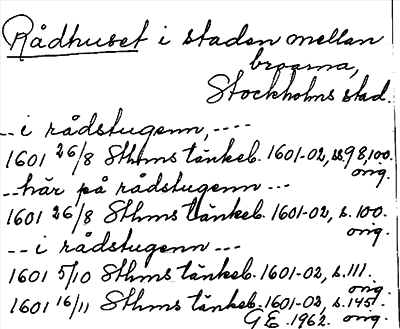 Rådhuset i staden mellan
broarna,
Stockholms stad.
-- i rådstugenn, ----
1601 26/8 Sthms tänkeb. 1601-02, ss. 98, 100.
orig.
-- här på rådstugenn ---
1601 26/8 Sthms tänkeb. 1601-02, s. 100.
orig.
-- i rådstugenn ---
1601 5/10 Sthms tänkeb. 1601-02, s. 111.
orig.
1601 16/11 Sthms tänkeb. 1601-02, s. 145.
G E. 1962. orig.